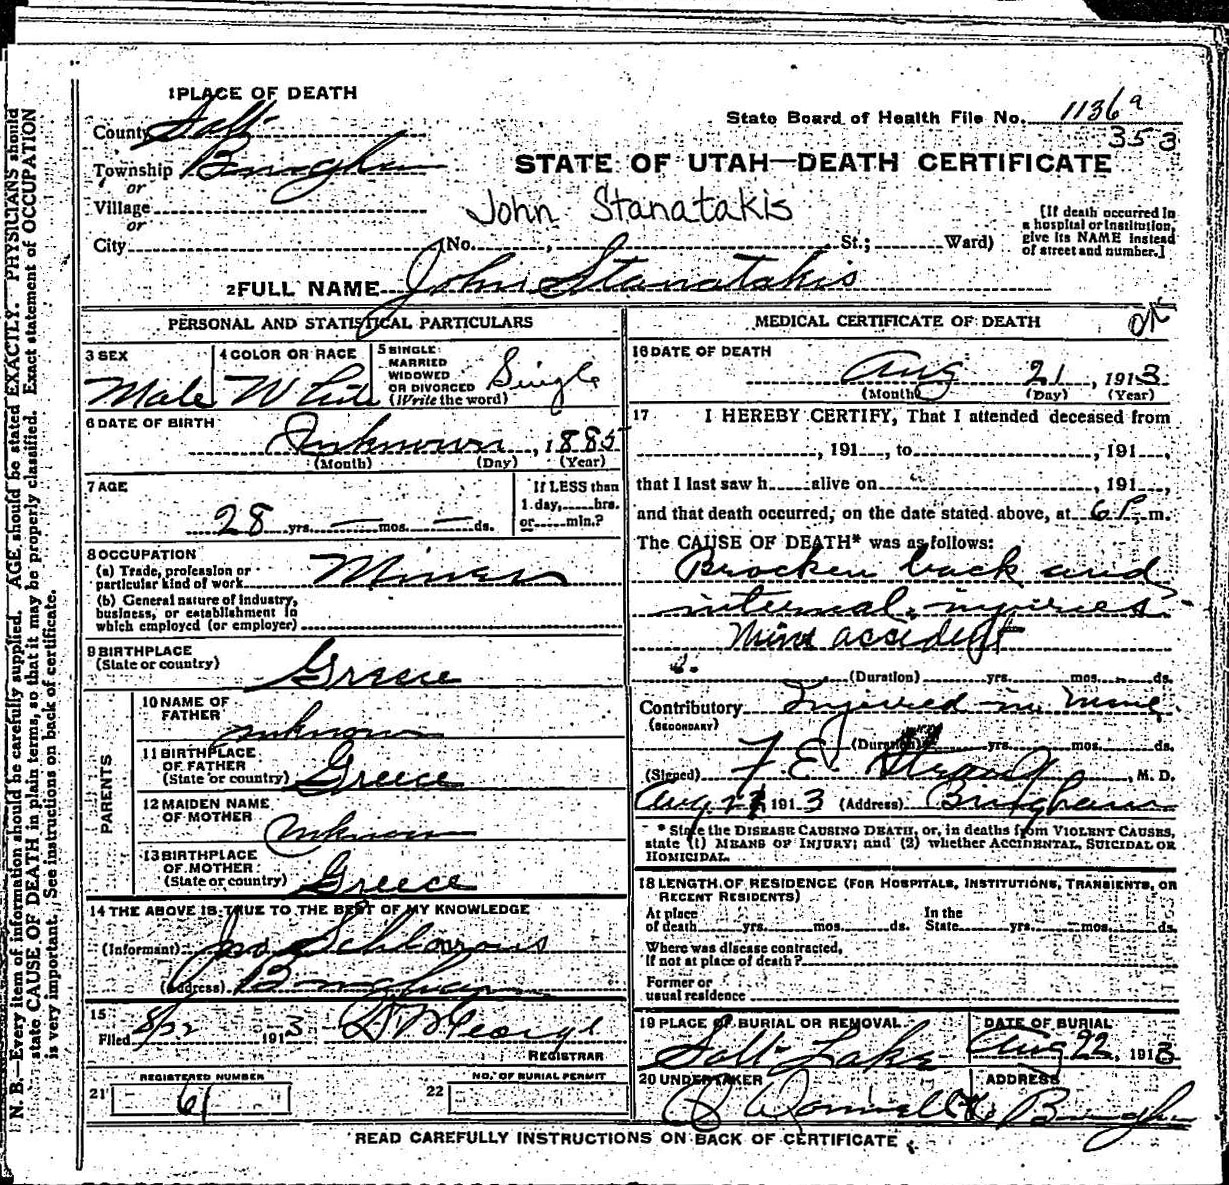 1 PLACE OF DEATH
County Salt
Township Bingham
or
Village
or
City (No. , St.; Ward)
State Board of Health File No. 1136 a
353
STATE OF UTAH—DEATH CERTIFICATE
John Stanatakis
[If death occurred in a hospital or institution, give its NAME instead of street and number.]
2 FULL NAME John Stanatakis
PERSONAL AND STATISTICAL PARTICULARS
3 SEX
Male
4 COLOR OR RACE
White
5 SINGLE
MARRIED
WIDOWED
OR DIVORCED
(Write the word)
Single
6 DATE OF BIRTH
Unknown, 1885
(Month) (Day) (Year)
7 AGE
28 yrs. — mos. — ds.
If LESS than
1 day, hrs.
or min.?
8 OCCUPATION
(a) Trade, profession or
particular kind of work Miner
(b) General nature of industry,
business, or establishment in
which employed (or employer)
9 BIRTHPLACE
(State or country) Greece
PARENTS
10 NAME OF
FATHER unknown
11 BIRTHPLACE
OF FATHER
(State or country) Greece
12 MAIDEN NAME
OF MOTHER Unknown
13 BIRTHPLACE
OF MOTHER
(State or country) Greece
14 THE ABOVE IS TRUE TO THE BEST OF MY KNOWLEDGE
(Informant) Jno
(Address) Bingham
15
Filed 8/22 1913
REGISTRAR
REGISTERED NUMBER
21 61
NO. OF BURIAL PERMIT
22
MEDICAL CERTIFICATE OF DEATH
OK
16 DATE OF DEATH
Aug 21, 1913
(Month) (Day) (Year)
17 I HEREBY CERTIFY, That I attended deceased from
, 191 , to , 191 ,
that I last saw h alive on , 191 ,
and that death occurred, on the date stated above, at 6 P. m.
The CAUSE OF DEATH* was as follows:
Brocken back and
internal injuries
Mine accident
(Duration) yrs. mos. ds.
Contributory Injured in mine.
(SECONDARY)
(Duration) yrs. mos. ds.
(Signed) F. E. Straup, M. D.
Aug. 22, 1913 (Address) Bingham
* State the DISEASE CAUSING DEATH, or, in deaths from VIOLENT CAUSES,
state (1) MEANS OF INJURY; and (2) whether ACCIDENTAL, SUICIDAL OR
HOMICIDAL.
18 LENGTH OF RESIDENCE (FOR HOSPITALS, INSTITUTIONS, TRANSIENTS, OR
RECENT RESIDENTS)
At place
of death yrs. mos. ds.
In the
State yrs. mos. ds.
Where was disease contracted,
If not at place of death?
Former or
usual residence
19 PLACE OF BURIAL OR REMOVAL
Salt Lake
DATE OF BURIAL
Aug 22, 1913
20 UNDERTAKER
O'Donnell & Co
ADDRESS
Bingham
READ CAREFULLY INSTRUCTIONS ON BACK OF CERTIFICATE
N. B.—Every item of information should be carefully supplied. AGE should be stated EXACTLY. PHYSICIANS should
state CAUSE OF DEATH in plain terms, so that it may be properly classified. Exact statement of OCCUPATION
is very important. See instructions on back of certificate.